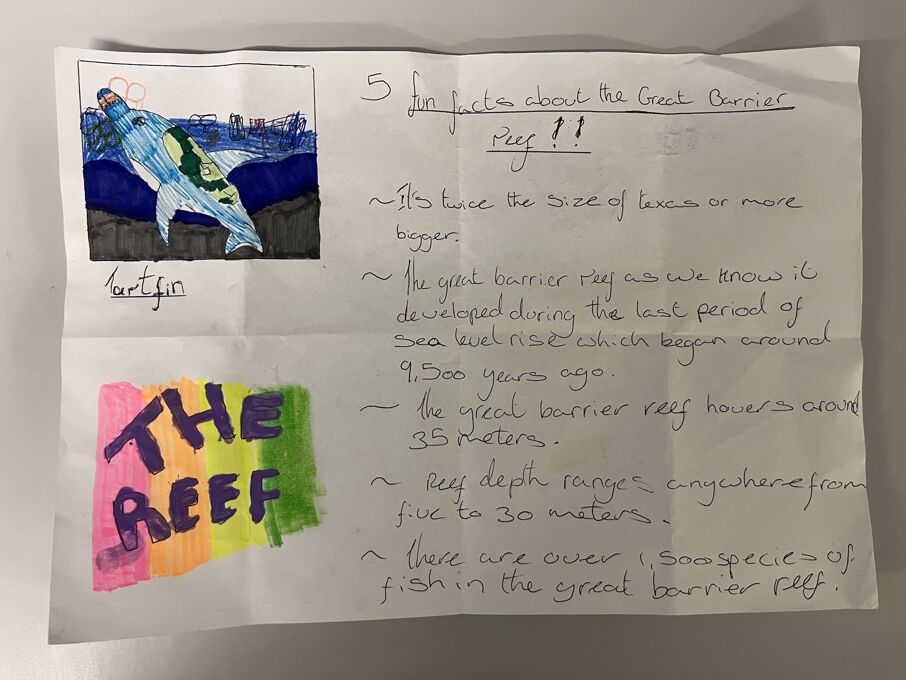 5 fun facts about the Great Barrier
Reef !!
~ It's twice the size of texas or more
bigger.
~ The great barrier reef as we know it
developed during the last period of
sea level rise which began around
9,500 years ago.
~ The great barrier reef hovers around
35 meters.
~ Reef depth ranges anywhere from
five to 30 meters.
~ There are over 1,500 species of
fish in the great barrier reef.
Tartfin
THE
REEF